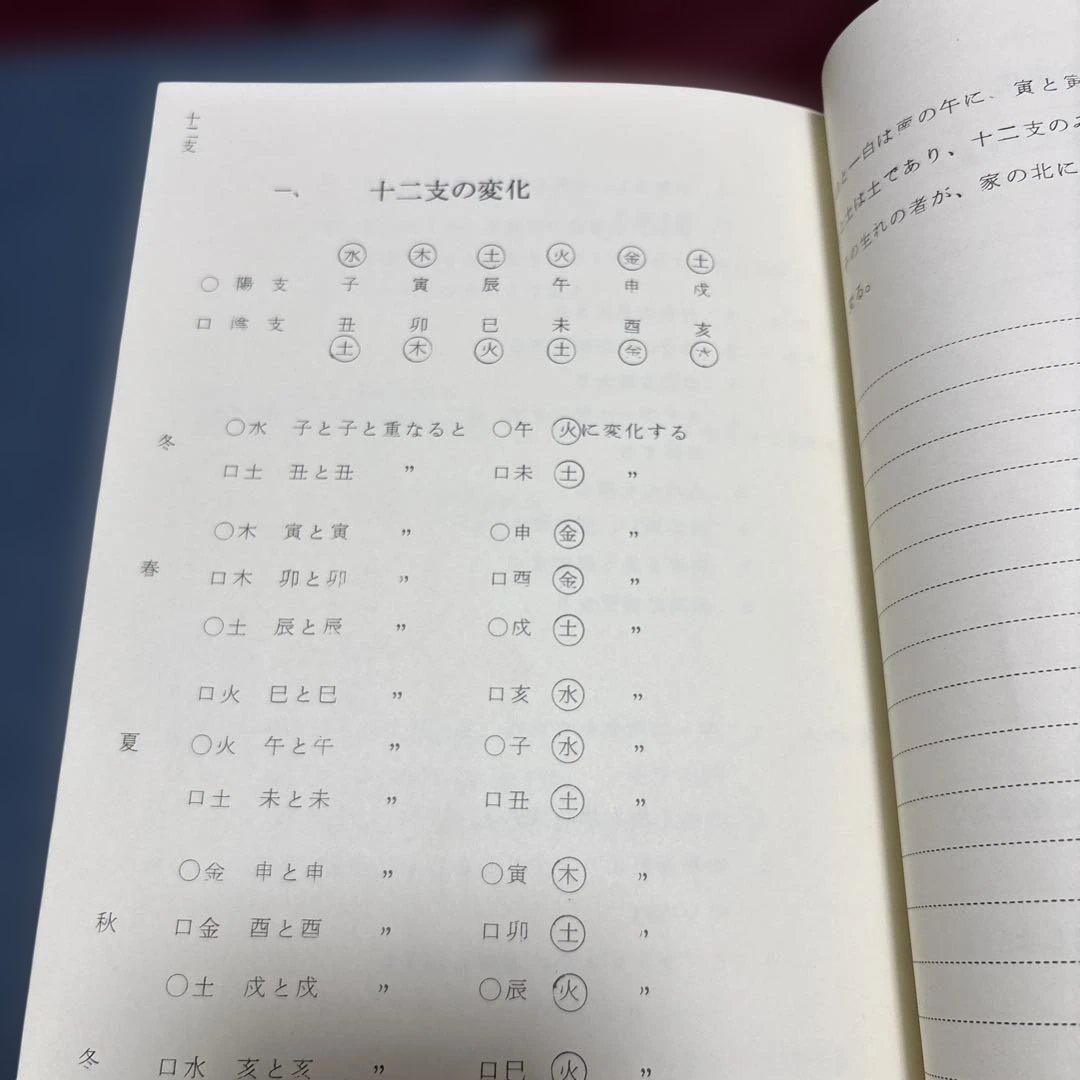 十二支
一、 十二支の変化
水 木 土 火 金 土
○ 陽 支 子 寅 辰 午 申 戌
□ 陰 支 丑 卯 巳 未 酉 亥
土 木 火 土 金 水
冬
○水 子と子と重なると ○午 火に変化する
□土 丑と丑 〃 □未 土 〃
春
○木 寅と寅 〃 ○申 金 〃
□木 卯と卯 〃 □酉 金 〃
○土 辰と辰 〃 ○戌 土 〃
夏
□火 巳と巳 〃 □亥 水 〃
○火 午と午 〃 ○子 水 〃
□土 未と未 〃 □丑 土 〃
秋
○金 申と申 〃 ○寅 木 〃
□金 酉と酉 〃 □卯 土 〃
○土 戌と戌 〃 ○辰 火 〃
冬
□水 亥と亥 〃 □巳 火 〃
と一白は南の午に、寅と寅
土は土であり、十二支の
の生れの者が、家の北に
る。